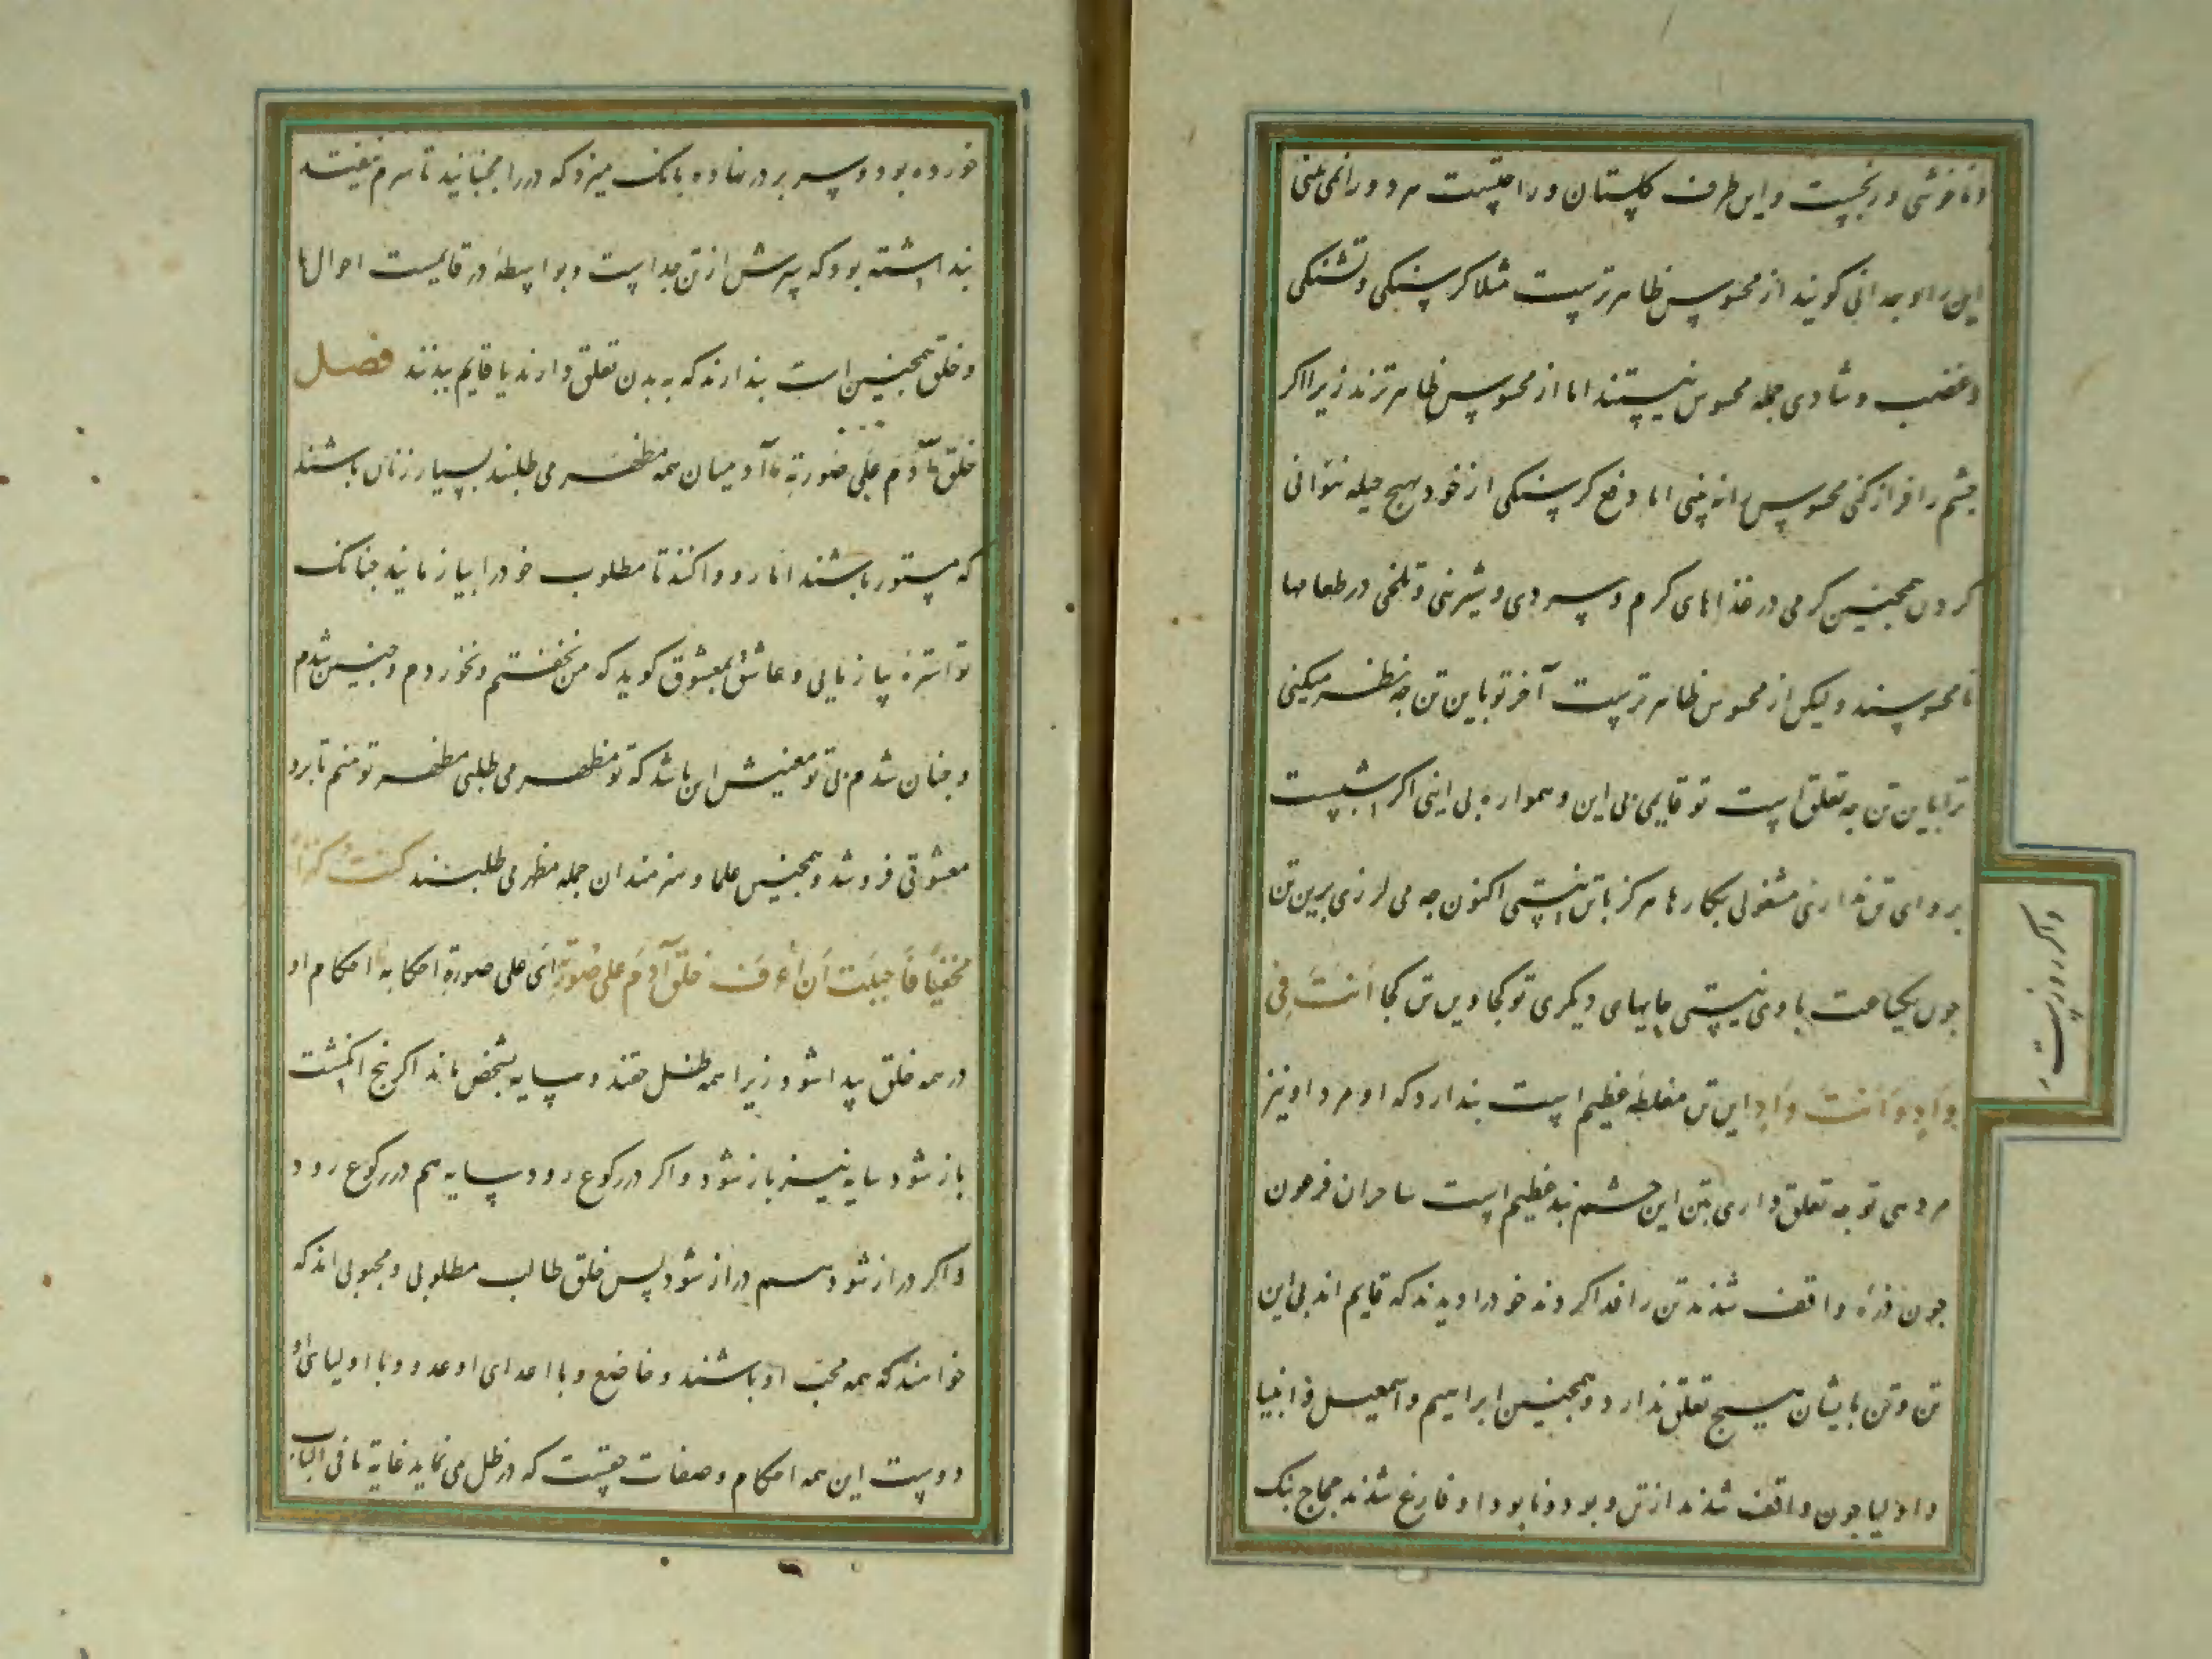 و ناخوشی و رنجیست و این طرف گلستان و راحتست مرد و را نمی بینی
این را وجدانی کویند از محسوس ظاهرترست مثلا کرسنکی و تشنکی
و غضب و شادی جمله محسوس نیستند اما از محسوس ظاهرترند زیرا اکر
چشم را فراز کنی محسوس را نه بینی اما دفع کرسنکی از خود بهیچ حیله نتوانی
کردن همچنین کرمی در غذاهای کرم و سردی و شیرنی و تلخی در طعامها
نامحسوسند ولیکن از محسوس ظاهرترست آخر تو باین تن چه نظر میکنی
ترا باین تن چه تعلق است تو قایمی بی این و همواره بی اینی اکر شبست
پروای تن نداری مشغولی بکارها هرکز با تن نیستی اکنون چه می لرزی برین تن
چون یکساعت با وی نیستی جایهای دیکری تو کجا و این تن کجا اَنتَ فِی
وادٍ وَ اَنتَ وادٍ این تن مغلطه عظیم است بندارد که او مرد او نیز
مرد هی تو چه تعلق داری بتن این چشم بند عظیم است ساحران فرعون
جون ذرّه واقف شدند تن را فدا کردند خود را دیدند که قایم اند بی این
تن و تن بایشان هیچ تعلق ندارد و همچنین ابراهیم و اسمعیل و انبیا
و اولیا جون واقف شدند از تن و بود و نابود او فارغ شدند حجاج بنک
و اکر روزست
خورده بود و سر بر در نهاده بانک میزد که در را مجنبانید تا سرم نیفتد
بنداشته بود که سرش از تن جداست و بواسطه در قایمست احوال ما
و خلق همچنین است بندارند که به بدن تعلق دارند یا قایم ببدنند فصل
خلق آدم علی صورته آدمیان همه مظهر می طلبند بسیار زنان باشند
که مستور باشند اما رو وا کنند تا مطلوب خود را بیازمایند چنانک
تو استره بیازمایی و عاشق بمعشوق کوید که من نخفتم و نخوردم و چنین شدم
و چنان شدم بی تو معنیش این باشد که تو مظهر می طلبی مظهر تو منم تا برو
معشوقی فروشد و همچنین علما و هنرمندان جمله مظهر می طلبند کُنتُ کنزاً
مخفیّاً فَاَحبَبتُ اَن اُعرَف خلق آدم علی صورته ای علی صورة احکامه احکام او
در همه خلق پیدا شود زیرا همه ظل حقند و سایه بشخص ماند اکر بنج انکشت
باز شود سایه نیز باز شود و اکر در رکوع رود سایه هم در رکوع رود
و اکر دراز شود هم دراز شود پس خلق طالب مطلوبی و محبوبی اند که
خواهند که همه محب او باشند و خاضع و با اعدای او عدو و با اولیای او
دوست این همه احکام و صفات حقست که در ظل می نماید غایة ما فی الباب